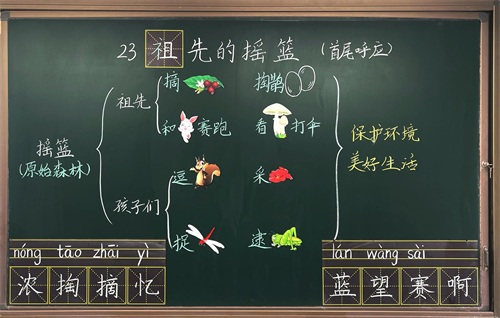 23 祖先的摇篮 (首尾呼应)
摇篮
(原始森林)
祖先
摘 掏鹊
和 赛跑 看 打伞
孩子们
逗 采
捉 逮
保护环境
美好生活
nóng tāo zhāi yì
浓掏摘忆
lán wàng sài
蓝望赛啊